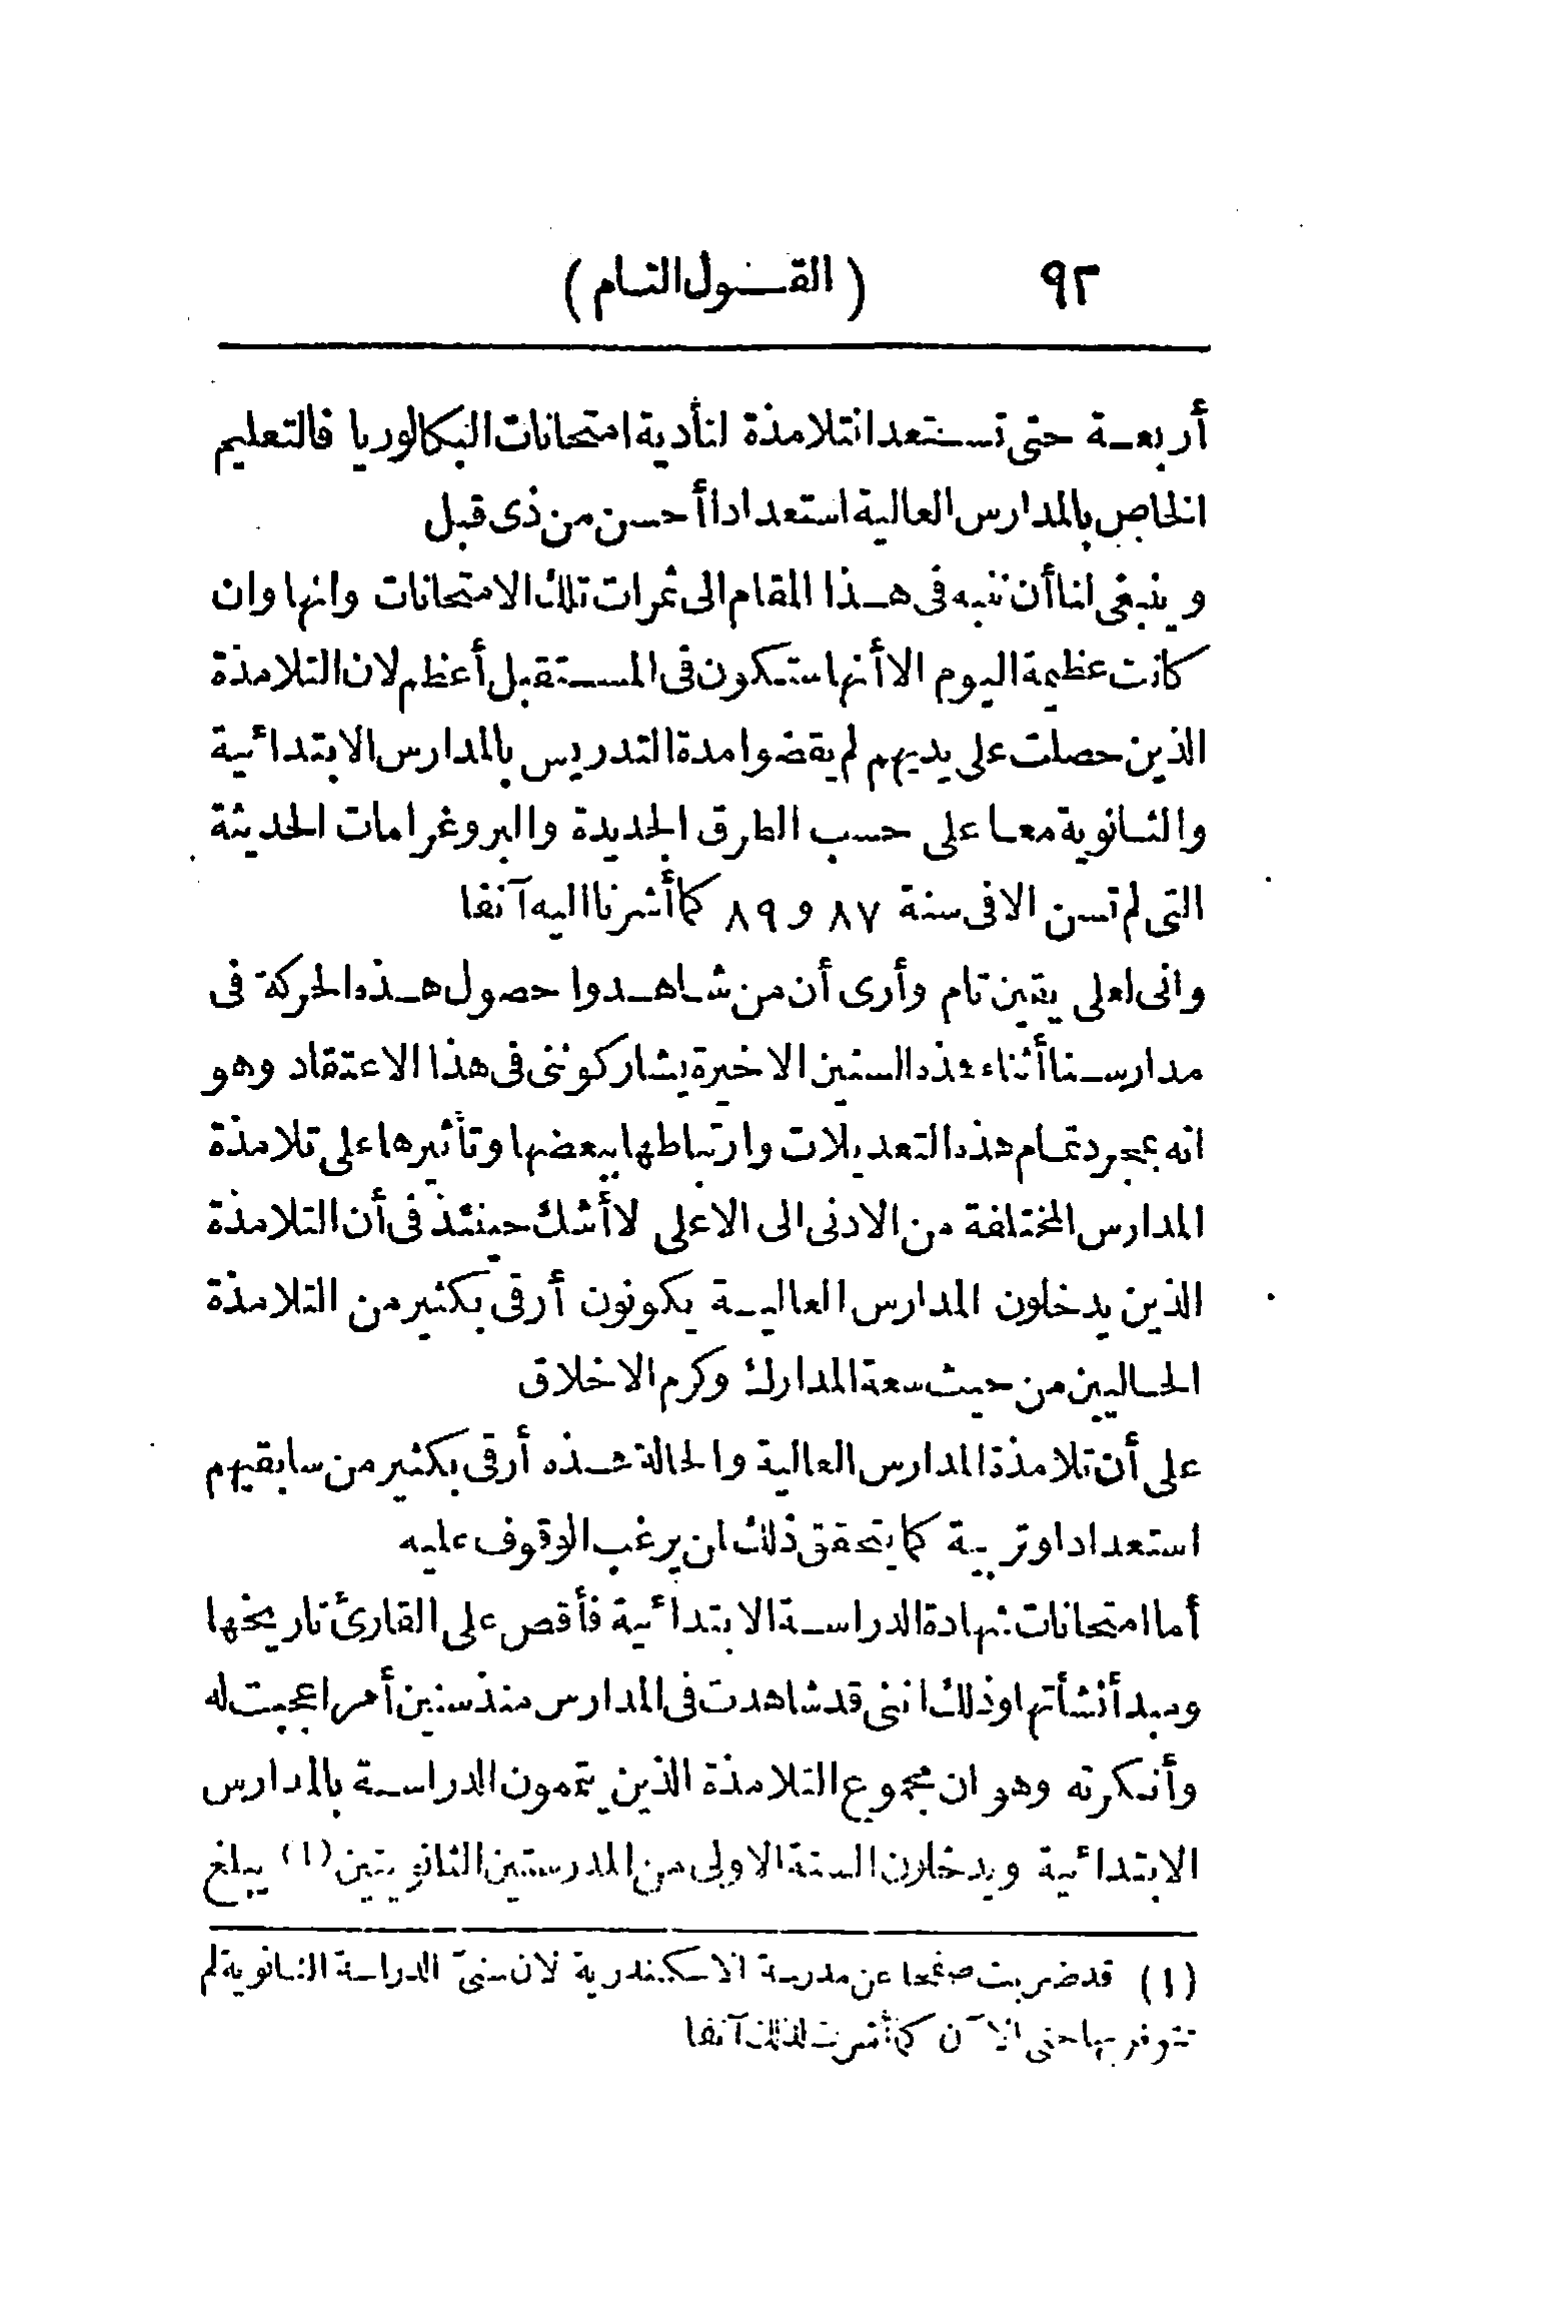 ٩٢ (القول التام)
أربعة حتى تستعد التلامذة لتأدية امتحانات البكالوريا فالتعليم
الخاص بالمدارس العالية استعدادا أحسن من ذى قبل
وينبغى لنا أن ننبه فى هذا المقام الى ثمرات تلك الامتحانات وانها وان
كانت عظيمة اليوم الا أنها ستكون فى المستقبل أعظم لان التلامذة
الذين حصلت على يديهم لم يقضوا مدة التدريس بالمدارس الابتدائية
والثانوية معا على حسب الطرق الجديدة والبروغرامات الحديثة
التى لم تسن الا فى سنة ٨٧ و ٨٩ كما أشرنا اليه آنفا
وانى لعلى يقين تام وأرى أن من شاهدوا حصول هذه الحركة فى
مدارسنا أثناء هذه السنين الاخيرة يشاركوننى فى هذا الاعتقاد وهو
انه بمجرد تمام هذه التعديلات وارتباطها ببعضها وتأثيرها على تلامذة
المدارس المختلفة من الادنى الى الاعلى لا أشك حينئذ فى أن التلامذة
الذين يدخلون المدارس العالية يكونون أرقى بكثير من التلامذة
الحاليين من حيث سعة المدارك وكرم الاخلاق
على أن تلامذة المدارس العالية والحالة هذه أرقى بكثير من سابقيهم
استعدادا وتربية كما يتحقق ذلك لمن يرغب الوقوف عليه
أما امتحانات شهادة الدراسة الابتدائية فأقص على القارئ تاريخها
ومبدأ نشأتها وذلك اننى قد شاهدت فى المدارس منذ سنين أمرا عجبت له
وأنكرته وهو ان مجموع التلامذة الذين يتممون الدراسة بالمدارس
الابتدائية ويدخلون السنة الاولى من المدرستين الثانويتين (١) يبلغ
(١) قد ضربت صفحا عن مدرسة الاسكندرية لان سنىّ الدراسة الثانوية لم
تتوفر بها حتى الآن كما أشرت لذلك آنفا